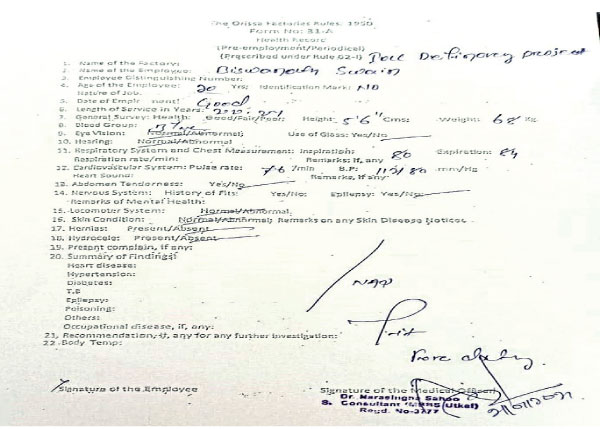 The Orissa Factories Rules: 1950
Form No: 31-A
Health Record
(Pre-employment/Periodical)
(Prescribed under Rule 62-I)
1. Name of the Factory:
2. Name of the Employee: Biswanath Swain
3. Employee Distinguishing Number:
4. Age of the Employee: 20 Yrs; Identification Mark: NO
Nature of Job.
5. Date of Employment:
6. Length of Service in Years:
7. General Survey: Health: Good/Fair/Poor: Height: 5'6" Cms: Weight: 62 Kg
8. Blood Group:
9. Eye Vision: Normal/Abnormal; Use of Glass: Yes/No
10. Hearing: Normal/Abnormal
11. Respiratory System and Chest Measurement: Inspiration: 80 Expiration: 84
Respiration rate/min: Remarks; if, any
12. Cardiovascular System: Pulse rate: 76 /min B.P: mm/Hg
Heart Sound: Remarks, if any
13. Abdomen Tenderness: Yes/No
14. Nervous System: History of Fits: Yes/No: Epilepsy: Yes/No
Remarks of Mental Health:
15. Locomotor System: Normal/Abnormal.
16. Skin Condition: Normal/Abnormal; Remarks on any Skin Disease Notice.
17. Hernias: Present/Absent
18. Hydrocele: Present/Absent
19. Present complain, if any:
20. Summary of Findings:
Heart disease:
Hypertension:
Diabetes:
T.B
Epilepsy:
Poisoning:
Others:
Occupational disease, if, any:
NAD
21. Recommendation, if, any for any further investigation:
22. Body Temp:
Signature of the Employee
Signature of the Medical Officer
Dr. Narasingha Sahoo
S. Consultant MBBS (Utkal)
Regd. No-3777